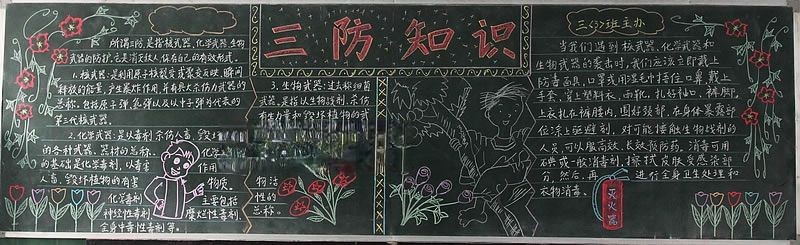 三防知识
三(3)班主办
所谓三防,是指核武器、化学武器、生物
武器的防护,它是消灭敌人,保存自己的有效形式。
1.核武器:是利用原子核裂变或聚变反映,瞬间
释放的能量,产生爆炸作用,并有大杀伤力武器的
总称。包括原子弹、氢弹以及以中子弹为代表的
第三代核武器。
2.化学武器:是以毒剂杀伤人畜、毁坏
的各种武器、器材的总称。
的基础是化学毒剂,以毒害
人畜,毁坏植物的有害
化学毒剂
神经性毒剂
全身中毒性毒剂等。
化学
作用
物质。
主要包括
糜烂性毒剂、
3.生物武器:过去称细菌
武器,是指以生物战剂杀伤
有生力量和毁坏植物的武
物活
性的
总称。
当我们遇到核武器、化学武器和
生物武器的袭击时,我们应该立即戴上
防毒面具、口罩或用湿毛巾捂住口鼻,戴上
手套,穿上塑料衣、雨靴,扎好袖口、裤脚,
上衣扎在裤腰内,围好颈部,在身体暴露部
位涂上驱避剂,对可能接触生物战剂的
人员,可以服高效、长效预防药。消毒可用
碘或一般消毒剂,擦拭皮肤受感染部
分,然后,再进行全身卫生处理和
衣物消毒。
灭火器